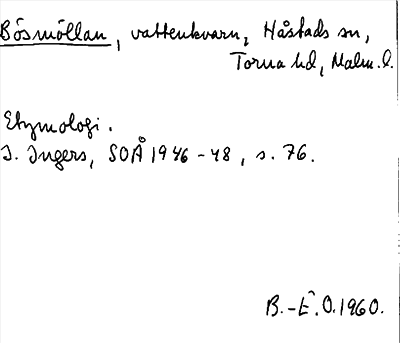 Bösmöllan, vattenkvarn, Håstads sn,
Torna hd, Malm. l.
Etymologi.
I. Ingers, SOÅ 1946-48, s. 76.
B.-E. O. 1960.